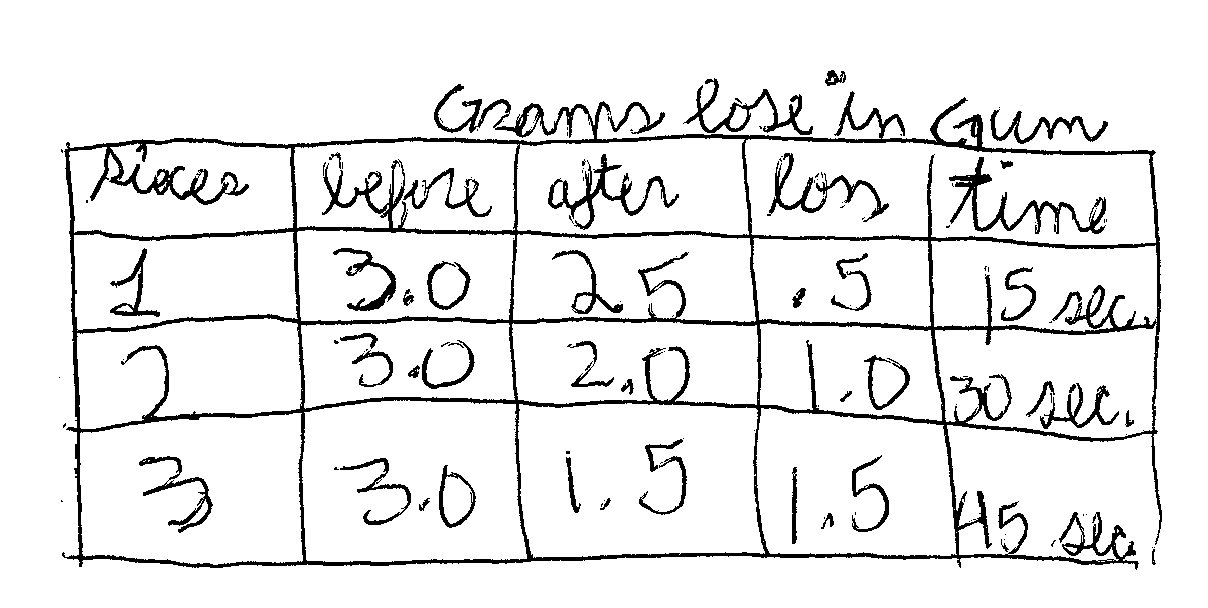 Grams lose in Gum
sixces before after loss time
1 3.0 2.5 .5 15 sec.
2 3.0 2.0 1.0 30 sec.
3 3.0 1.5 1.5 45 sec.